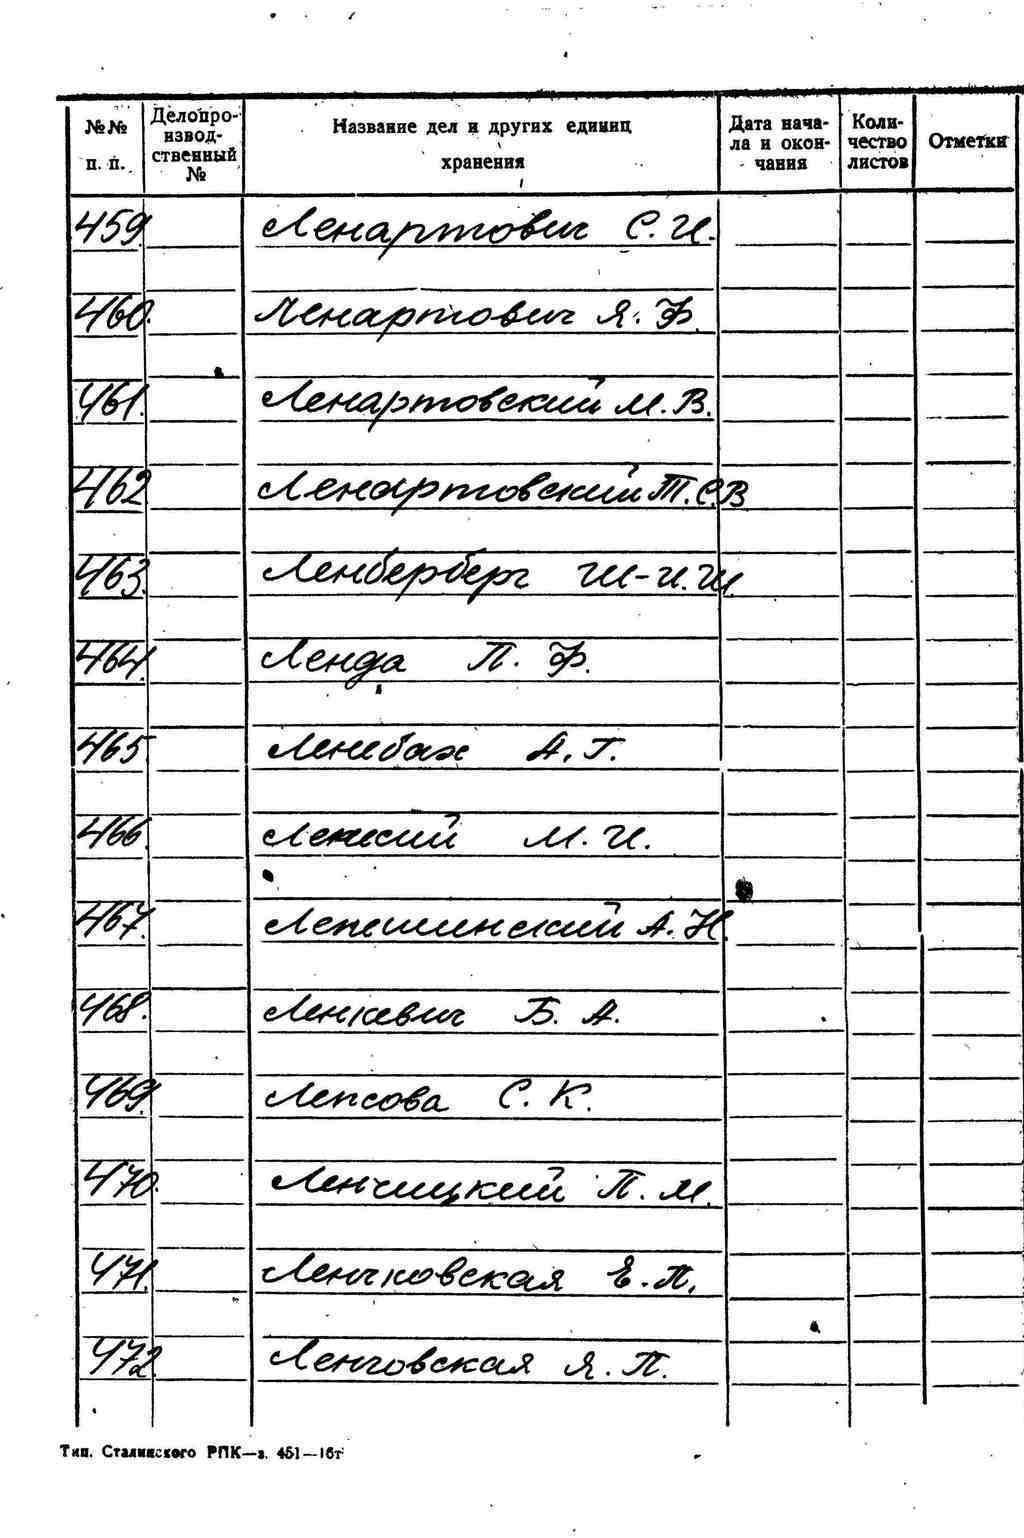 №№ п. п.
Делопроизводственный №
Название дел и других единиц хранения
Дата начала и окончания
Количество листов
Отметки
459. Ленартович С. И.
460. Ленартович Я. Ф.
461. Ленартовский М. В.
462 Ленартовский Т. С. В
463. Ленберберг Ш-И. Ш.
464. Ленда П. Ф.
465 Ленебах А. Г.
466. Ленский М. И.
467. Лепешинский А. Н.
468. Ленкевич Б. А.
469. Лепсова С. К.
470. Ленчицкий П. М.
471. Ленчковская Е. П.
472. Ленговская Я. П.
Тип. Сталинского РПК—з. 451—16т